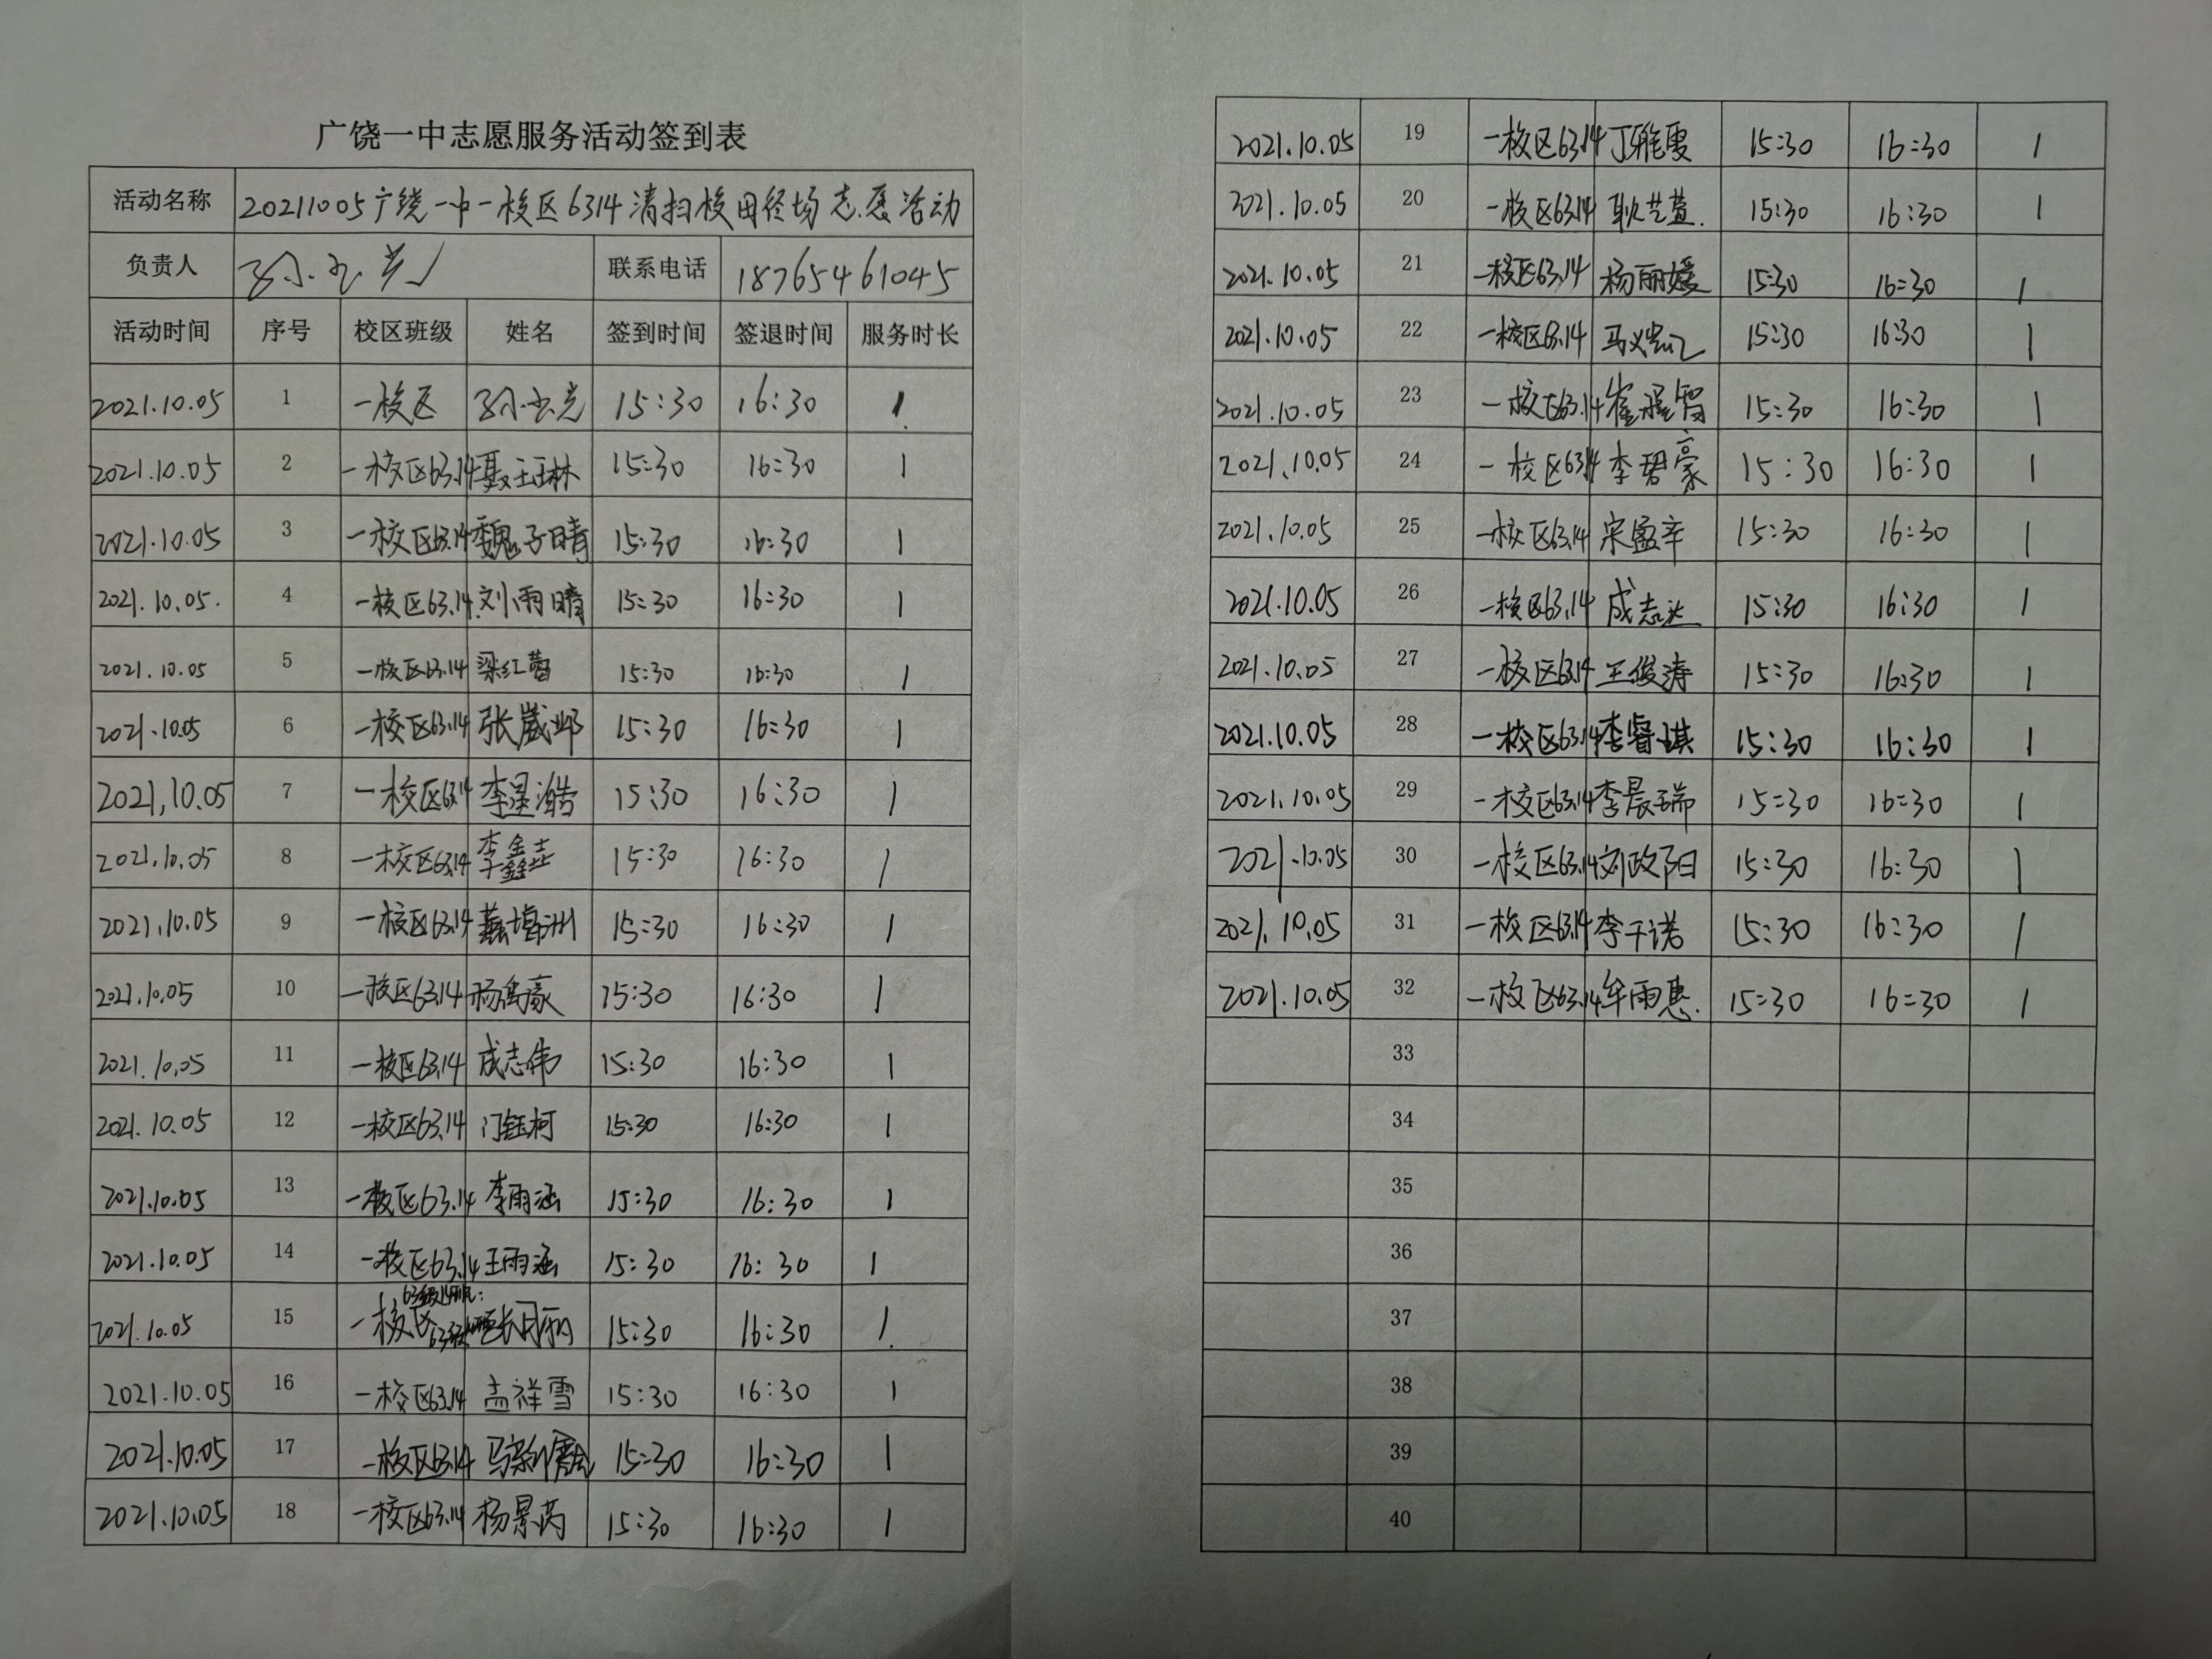 广饶一中志愿服务活动签到表
活动名称 20211005广饶一中一校区6314清扫校田径场志愿活动
负责人 联系电话 18765461045
活动时间 序号 校区班级 姓名 签到时间 签退时间 服务时长
2021.10.05 1 一校区 15:30 16:30 1
2021.10.05 2 一校区63.14 聂玉琳 15:30 16:30 1
2021.10.05 3 一校区63.14 魏子晴 15:30 16:30 1
2021.10.05. 4 一校区63.14 刘雨晴 15:30 16:30 1
2021.10.05 5 一校区63.14 梁红蕾 15:30 16:30 1
2021.10.05 6 一校区63.14 张崴邺 15:30 16:30 1
2021.10.05 7 一校区63.14 李昱潞 15:30 16:30 1
2021.10.05 8 一校区63.14 李鑫垚 15:30 16:30 1
2021.10.05 9 一校区63.14 15:30 16:30 1
2021.10.05 10 一校区63.14 杨禹豪 15:30 16:30 1
2021.10.05 11 一校区63.14 成志伟 15:30 16:30 1
2021.10.05 12 一校区63.14 门钰柯 15:30 16:30 1
2021.10.05 13 一校区63.14 李雨涵 15:30 16:30 1
2021.10.05 14 一校区63.14 王雨涵 15:30 16:30 1
2021.10.05 15 一校区 15:30 16:30 1
2021.10.05 16 一校区63.14 孟祥雪 15:30 16:30 1
2021.10.05 17 一校区63.14 15:30 16:30 1
2021.10.05 18 一校区63.14 杨景芮 15:30 16:30 1
2021.10.05 19 一校区63.14 丁雅雯 15:30 16:30 1
2021.10.05 20 一校区63.14 耿艺萱 15:30 16:30 1
2021.10.05 21 一校区63.14 杨丽媛 15:30 16:30 1
2021.10.05 22 一校区63.14 15:30 16:30 1
2021.10.05 23 一校区63.14 15:30 16:30 1
2021.10.05 24 一校区63.14 李碧豪 15:30 16:30 1
2021.10.05 25 一校区63.14 宋盈辛 15:30 16:30 1
2021.10.05 26 一校区63.14 成志达 15:30 16:30 1
2021.10.05 27 一校区63.14 王俊涛 15:30 16:30 1
2021.10.05 28 一校区63.14 李睿琪 15:30 16:30 1
2021.10.05 29 一校区63.14 李晨瑞 15:30 16:30 1
2021.10.05 30 一校区63.14 刘政阳 15:30 16:30 1
2021.10.05 31 一校区63.14 李千诺 15:30 16:30 1
2021.10.05 32 一校区63.14 牟雨惠 15:30 16:30 1
33
34
35
36
37
38
39
40